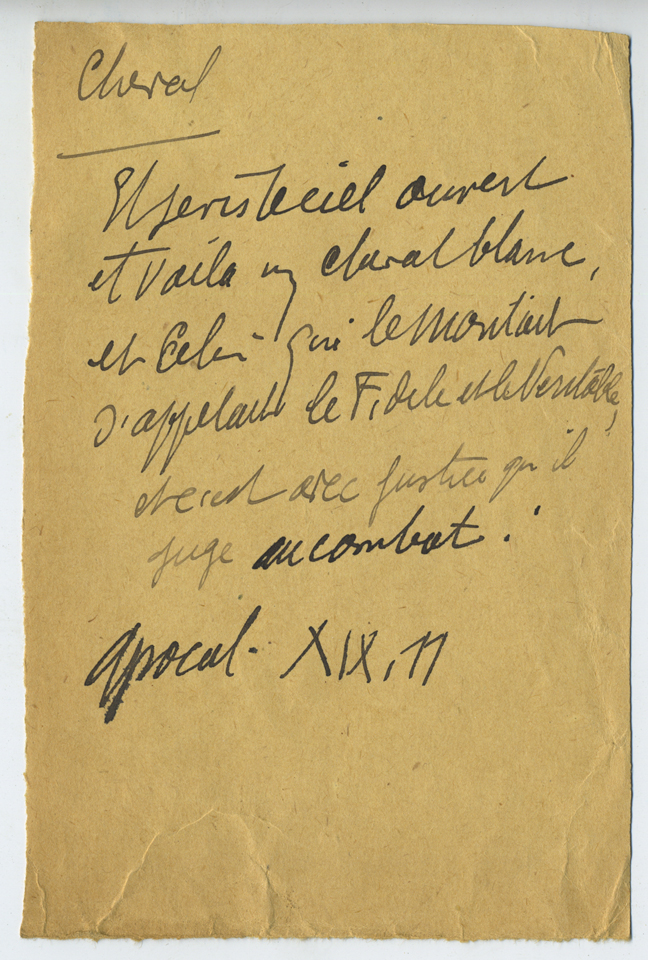 Cheval
Et je vis le ciel ouvert
et voila un cheval blanc,
et Celui qui le montait
s'appelait le Fidele et le Veritable,
et c'est avec justice qu'il
juge au combat.
Apocal. XIX, 11